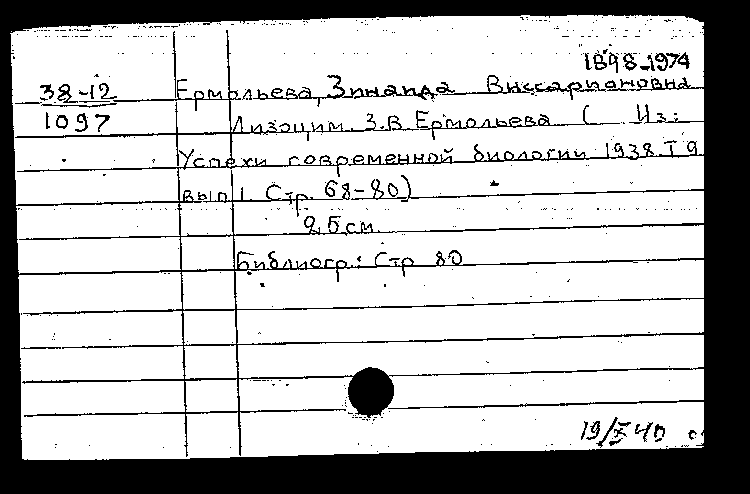 1898-1974
38-12 Ермольева, Зинаида Виссарионовна
1097 Лизоцим. З.В. Ермольева ( Из:
Успехи современной биологии 1938. Т 9
вып 1. Стр. 68-80)
25 см.
Библиогр.: Стр 80
19/X 40